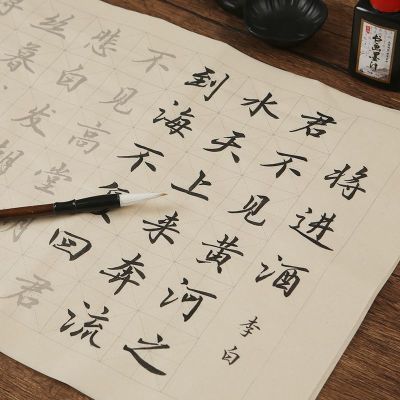 将进酒
李白
君不见黄河之
水天上来奔流
到海不回君
不见高堂明
悲白发朝
丝暮
书画墨汁